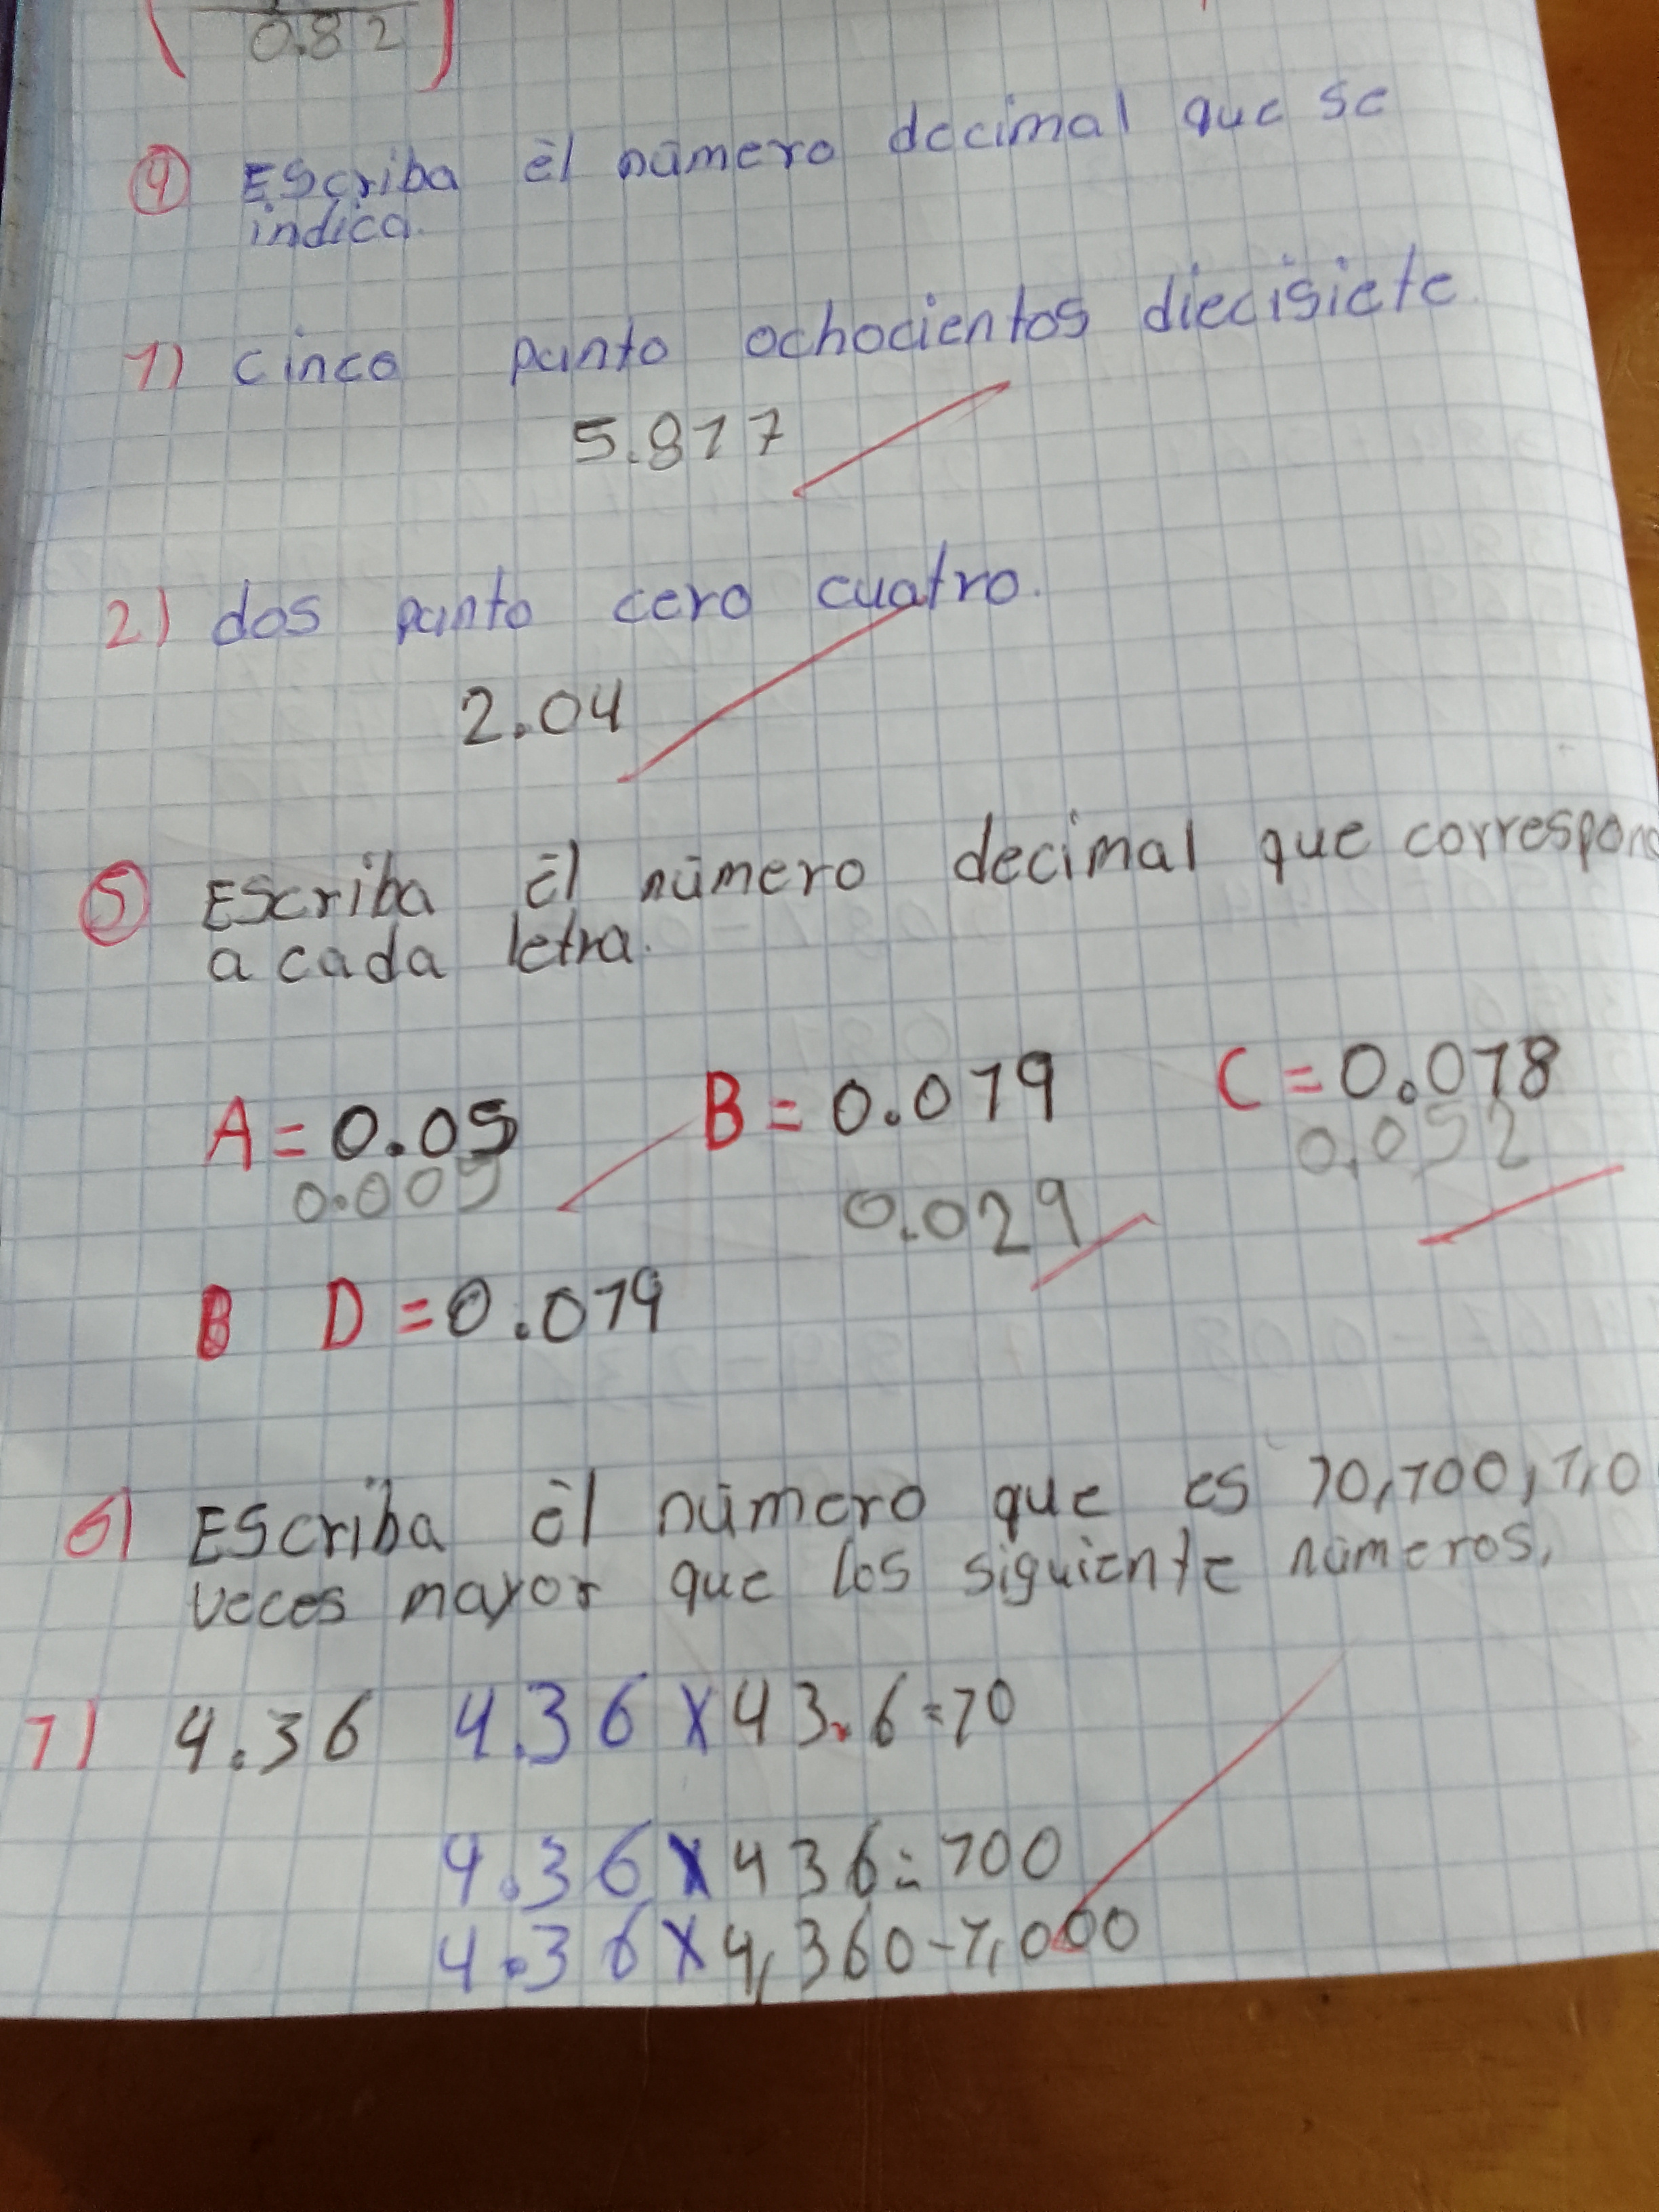 0.82
④ Escriba el número decimal que se
indica.
1) cinco punto ochocientos diecisiete
5.817
2) dos punto cero cuatro.
2.04
⑤ Escriba el número decimal que correspon
a cada letra.
A = 0.05 B = 0.019 C = 0.018
0.005 0.029 0.052
B D = 0.019
6) Escriba el número que es 10,100,1,0
veces mayor que los siguiente números,
1) 4.36 4.36 X 43.6 = 10
4.36 X 436 = 100
4.36 X 4,360 - 1,000